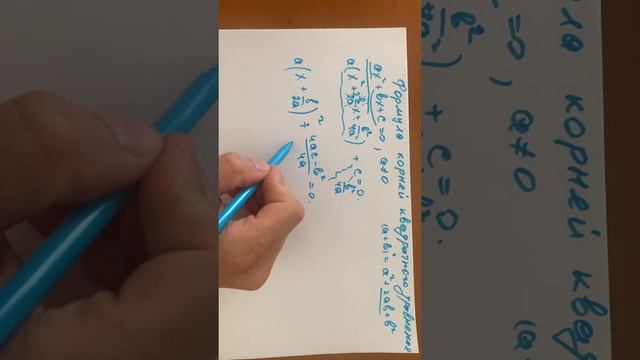 Формула корней квадратного уравнения
ax² + bx + c = 0, a ≠ 0
(a+b)² = a² + 2ab + b²
a(x² + 2b/2a x + b²/4a²) + c - b²/4a = 0.
a(x + b/2a)² + 4ac - b²/4a = 0.